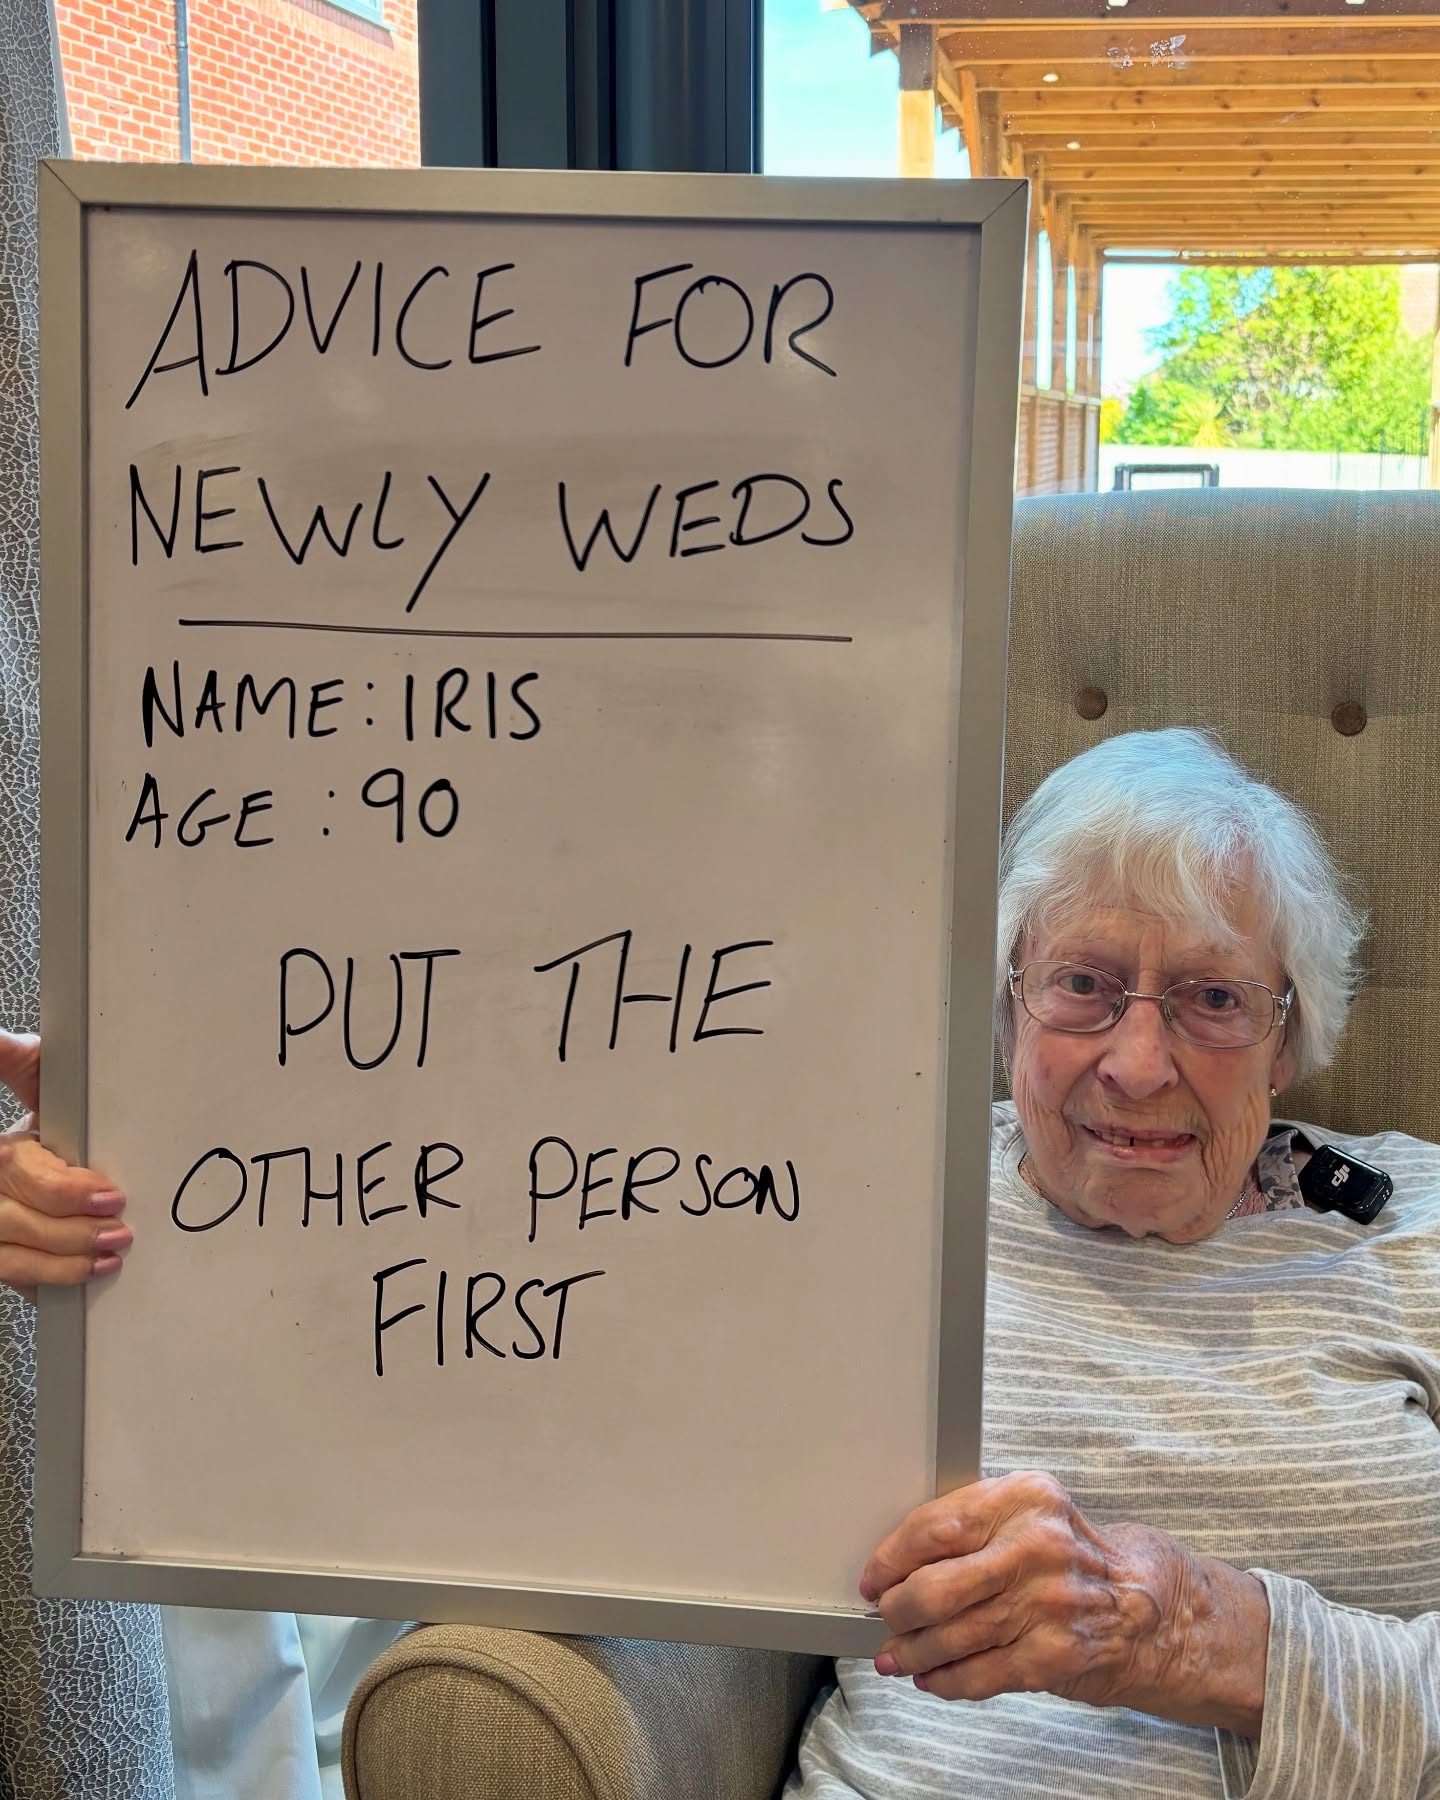 ADVICE FOR
NEWLY WEDS
NAME: IRIS
AGE : 90
PUT THE
OTHER PERSON
FIRST
dji